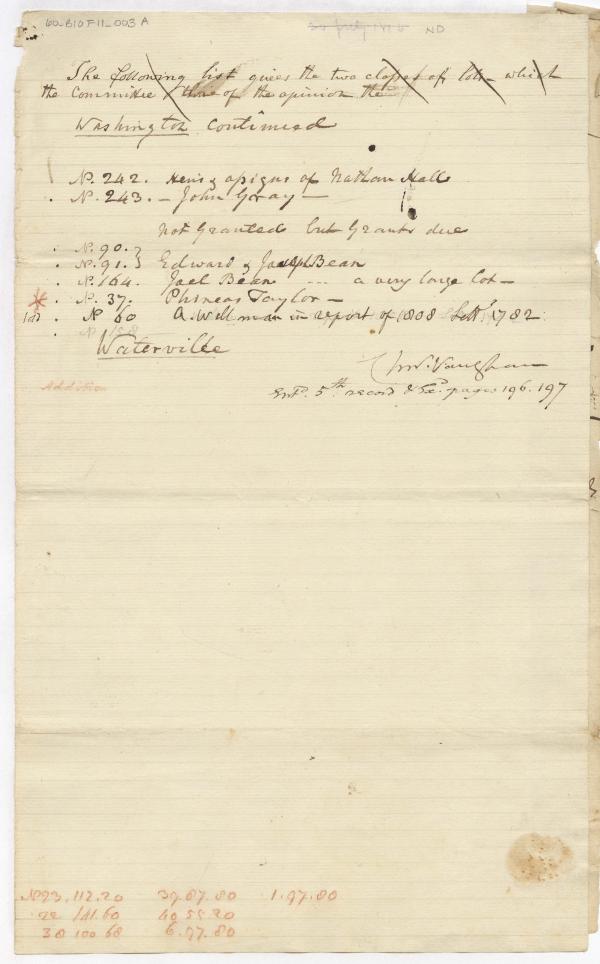 60-B10F11-003 A
30 July 1816 ND
The following list gives the two classes of lots - which
the Committee of the opinion the
Washington continued
No. 242. Heirs & assigns of Nathan Hall
No. 243. - John Gray -
Not Granted but Grants due
No. 90. }
No. 91. } Edward & Joseph Bean
No. 164. Joel Bean ... a very large lot -
* No. 37. Phineas Taylor -
No 60 A. Wellman in report of 1808 1782
No 158
Waterville
Chas. Vaughan
Addition
Entd. 5th record pages 196. 197
No 23. 112.20 39.87.80 1.97.80
22 141.60 40 55 20
38 100 68 6.97.80